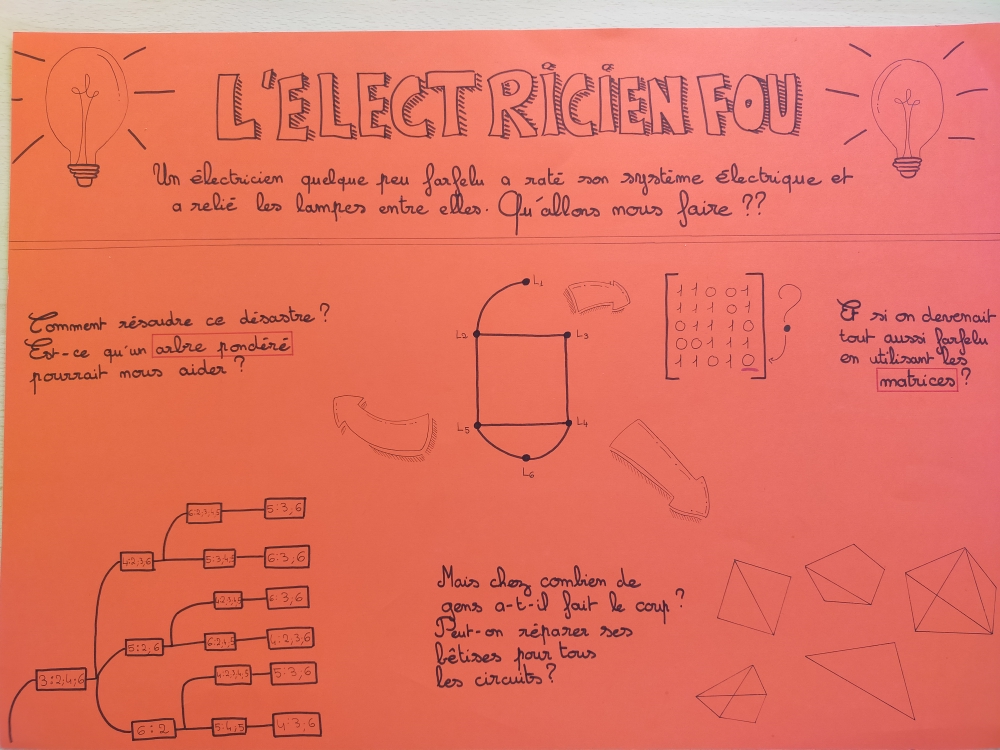 L'ELECTRICIEN FOU
Un électricien quelque peu farfelu a raté son système électrique et
a relié les lampes entre elles. Qu'allons nous faire ??
Comment résoudre ce désastre ?
Est-ce qu'un arbre pondéré
pourrait nous aider ?
L1
L2
L3
L5
L4
L6
1 1 0 0 1
1 1 1 0 1
0 1 1 1 0
0 0 1 1 1
1 1 0 1 0
?
Et si on devenait
tout aussi farfelu
en utilisant les
matrices ?
6:2,3,4,5
5:3,6
4:2,3,6
5:3,4,5
6:3,6
4:2,3,4,5
6:3,6
5:2,6
6:2,4,5
4:2,3,6
3:2;4;6
4:2,3,4,5
5:3,6
6:2
5:4,5
4:3,6
Mais chez combien de
gens a-t-il fait le coup ?
Peut-on réparer ses
bêtises pour tous
les circuits ?